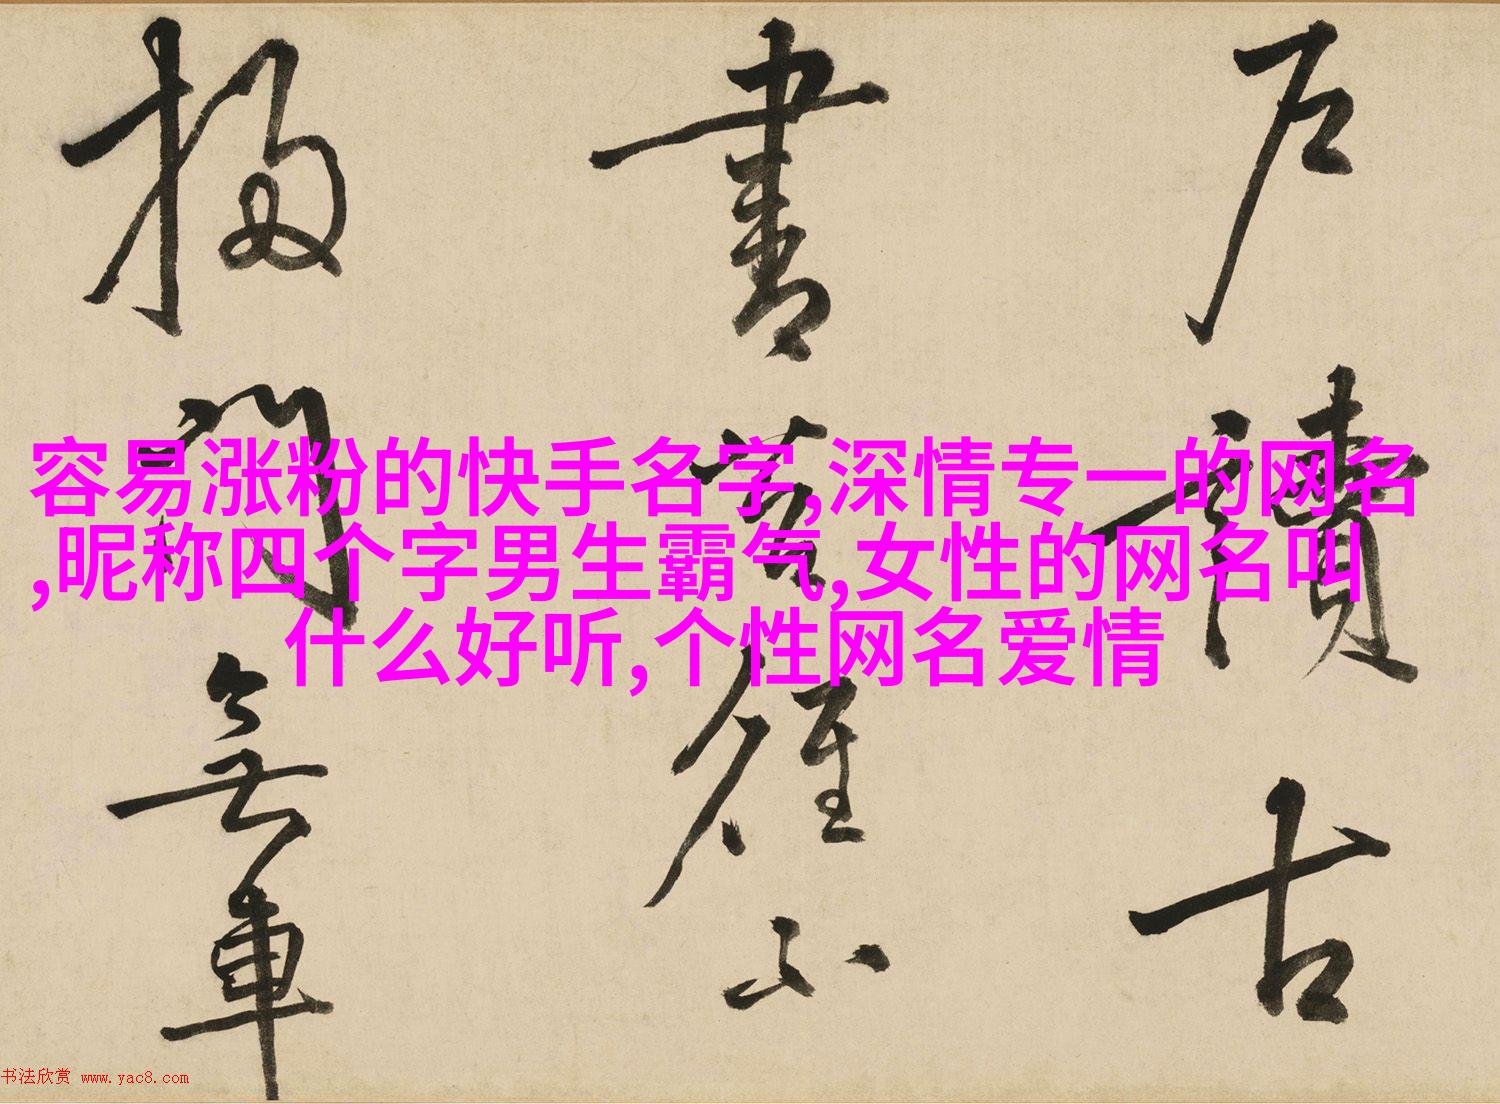 容易涨粉的快手名字,深情专一的网名
,昵称四个字男生霸气,女性的网名叫
什么好听,个性网名爱情
戶讀古
書不
掃門無車
书法欣赏 www.yac8.com